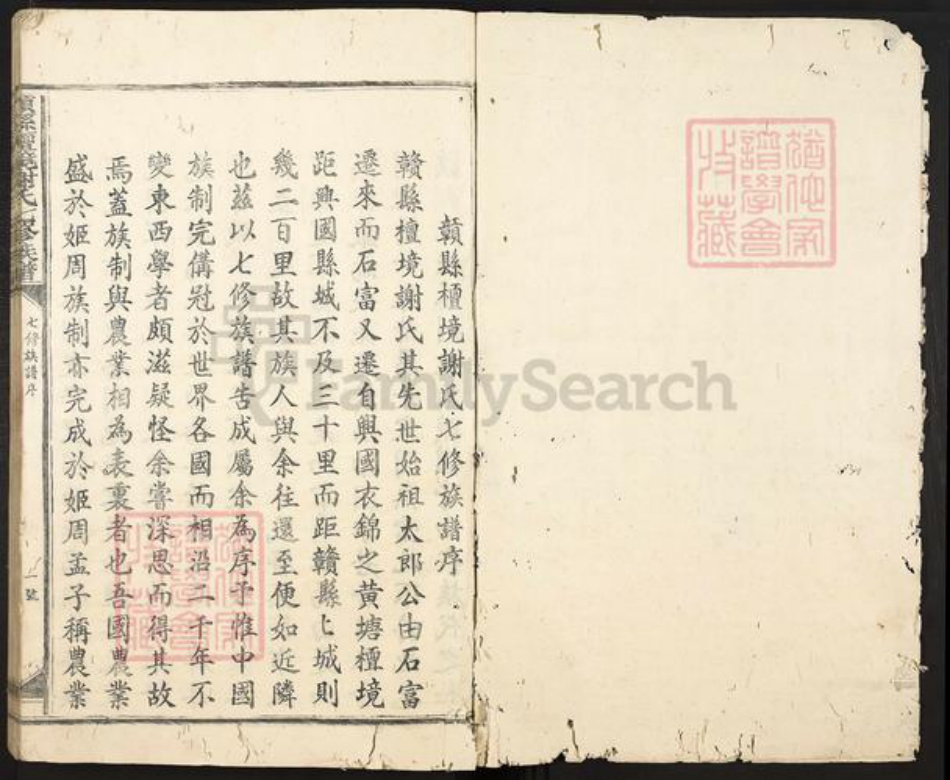 贛縣檀境謝氏七修族譜序
贛縣檀境謝氏其先世始祖太郎公由石富
遷來而石富又遷自興國衣錦之黃塘檀境
距興國縣城不及三十里而距贛縣匕城則
幾二百里故其族人與余往還至便如近隣
也茲以七修族譜告成屬余為序予惟中國
族制完備冠於世界各國而相沿二千年不
變東西學者頗滋疑怪余嘗深思而得其故
焉蓋族制與農業相為表裏者也吾國農業
盛於姬周族制亦完成於姬周孟子稱農業
七修族譜序
一號
譜學會
收藏
FamilySearch